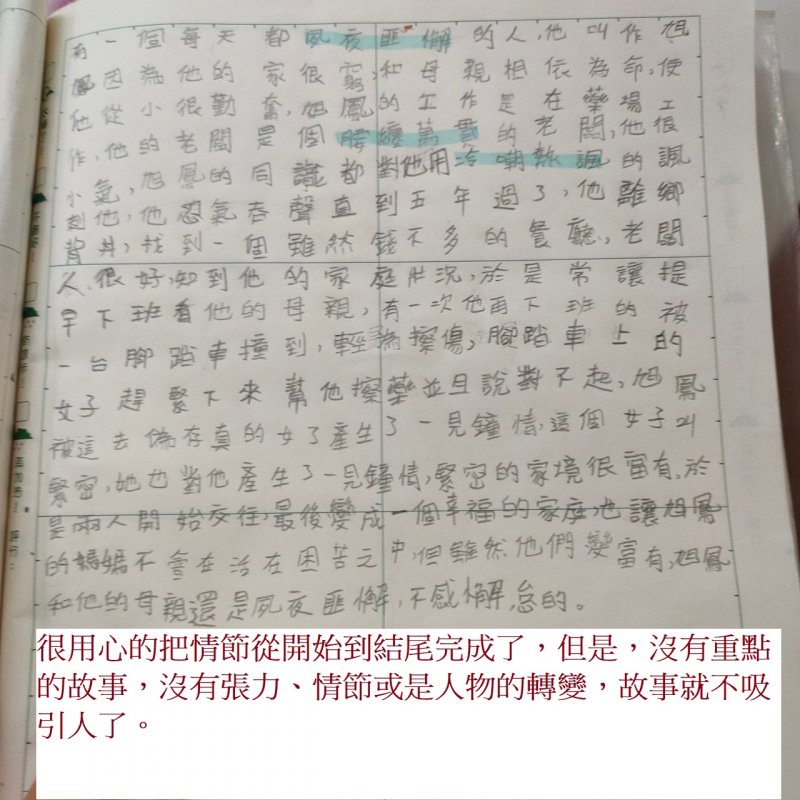 有一個每天都夙夜匪懈的人,他叫作旭
鳳因為他的家很窮,和母親相依為命,使
他從小很勤奮,旭鳳的工作是在藥場工
作,他的老闆是個腰纏萬貫的老闆,他很
小氣,旭鳳的同識都對他用冷嘲熱諷的諷
刺他,他忍氣吞聲直到五年過了,他離鄉
背井,找到一個雖然錢不多的餐廳,老闆
人很好,知到他的家庭片況,於是常讓提
早下班看他的母親,有一次他再下班的被
一台腳踏車撞到,輕 擦傷,腳踏車上的
女子趕緊下來幫他擦藥並且說對不起,旭鳳
被這去偽存真的女了產生了一見鐘情,這個女子叫
緊密,她也對他產生了一見鐘情,緊密的家境很富有,於
是兩人開始交往,最後變成一個幸福的家庭,也讓旭鳳
的媽媽不會在活在困苦之中,但雖然他們變富有,旭鳳
和他的母親還是夙夜匪懈,不感懈怠的。
很用心的把情節從開始到結尾完成了,但是,沒有重點
的故事,沒有張力、情節或是人物的轉變,故事就不吸
引人了。